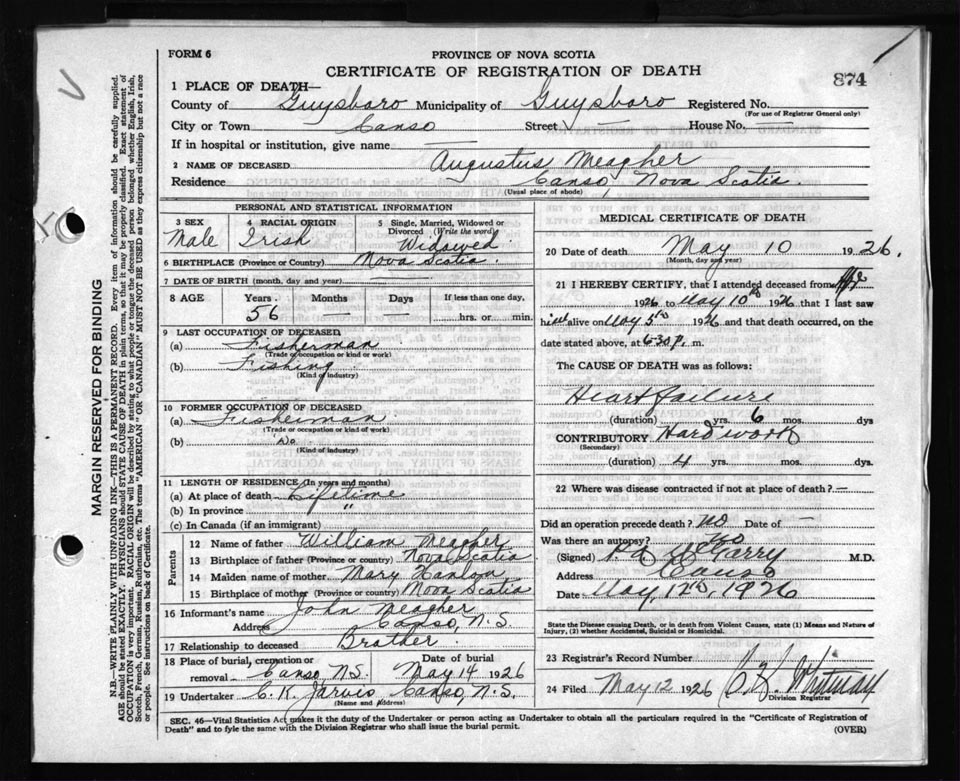 FORM 6
PROVINCE OF NOVA SCOTIA
CERTIFICATE OF REGISTRATION OF DEATH
874
1 PLACE OF DEATH—
County of Guysboro Municipality of Guysboro Registered No.
(For use of Registrar General only)
City or Town Canso Street — House No. —
If in hospital or institution, give name —
2 NAME OF DECEASED Augustus Meagher
Residence Canso, Nova Scotia
(Usual place of abode)
PERSONAL AND STATISTICAL INFORMATION
3 SEX Male
4 RACIAL ORIGIN Irish
5 Single, Married, Widowed or Divorced (Write the word) Widowed
6 BIRTHPLACE (Province or Country) Nova Scotia
7 DATE OF BIRTH (month, day and year)
8 AGE Years 56 Months — Days — If less than one day, hrs. or min.
9 LAST OCCUPATION OF DECEASED
(a) Fisherman
(Trade or occupation or kind of work)
(b) Fishing
(Kind of industry)
10 FORMER OCCUPATION OF DECEASED
(a) Fisherman
(Trade or occupation or kind of work)
(b) Do
(Kind of industry)
11 LENGTH OF RESIDENCE (In years and months)
(a) At place of death Lifetime
(b) In province "
(c) In Canada (if an immigrant)
Parents
12 Name of father William Meagher
13 Birthplace of father (Province or country) Nova Scotia
14 Maiden name of mother Mary Hanlon
15 Birthplace of mother (Province or Country) Nova Scotia
16 Informant's name John Meagher
Address Canso, N.S.
17 Relationship to deceased Brother
18 Place of burial, cremation or removal Canso N.S. Date of burial May 14 1926
19 Undertaker C. K. Jarvis Canso, N.S.
(Name and Address)
MEDICAL CERTIFICATE OF DEATH
20 Date of death May 10 1926.
(Month, day and year)
21 I HEREBY CERTIFY, that I attended deceased from
1926 to May 10th 1926 that I last saw
him alive on May 5th 1926 and that death occurred, on the
date stated above, at 6-30 p. m.
The CAUSE OF DEATH was as follows:
Heart failure
(duration) yrs. 6 mos. dys
CONTRIBUTORY Hard work
(Secondary)
(duration) 4 yrs. mos. dys.
22 Where was disease contracted if not at place of death? —
Did an operation precede death? no Date of —
Was there an autopsy? no
(Signed) McGarry M.D.
Address Canso
Date May, 12th, 1926
State the Disease causing Death, or in death from Violent Causes, state (1) Means and Nature of
Injury, (2) whether Accidental, Suicidal or Homicidal.
23 Registrar's Record Number 1.
24 Filed May 12 1926 Whitman
Division Registrar
SEC. 46—Vital Statistics Act makes it the duty of the Undertaker or person acting as Undertaker to obtain all the particulars required in the "Certificate of Registration of
Death" and to fyle the same with the Division Registrar who shall issue the burial permit.
(OVER)
MARGIN RESERVED FOR BINDING
N.B.—WRITE PLAINLY WITH UNFADING INK—THIS IS A PERMANENT RECORD. Every item of information should be carefully supplied.
AGE should be stated EXACTLY. PHYSICIANS should STATE CAUSE OF DEATH in plain terms, so that it may be properly classified. Exact statement of
OCCUPATION is very important. RACIAL ORIGIN will be described by stating to what people or tongue the deceased person belonged whether English, Irish,
Scotch, French, German, Russian, Ruthenian, etc. The terms "AMERICAN" OR "CANADIAN" MUST NOT BE USED as they express citizenship but not a race
or people. See instructions on back of Certificate.